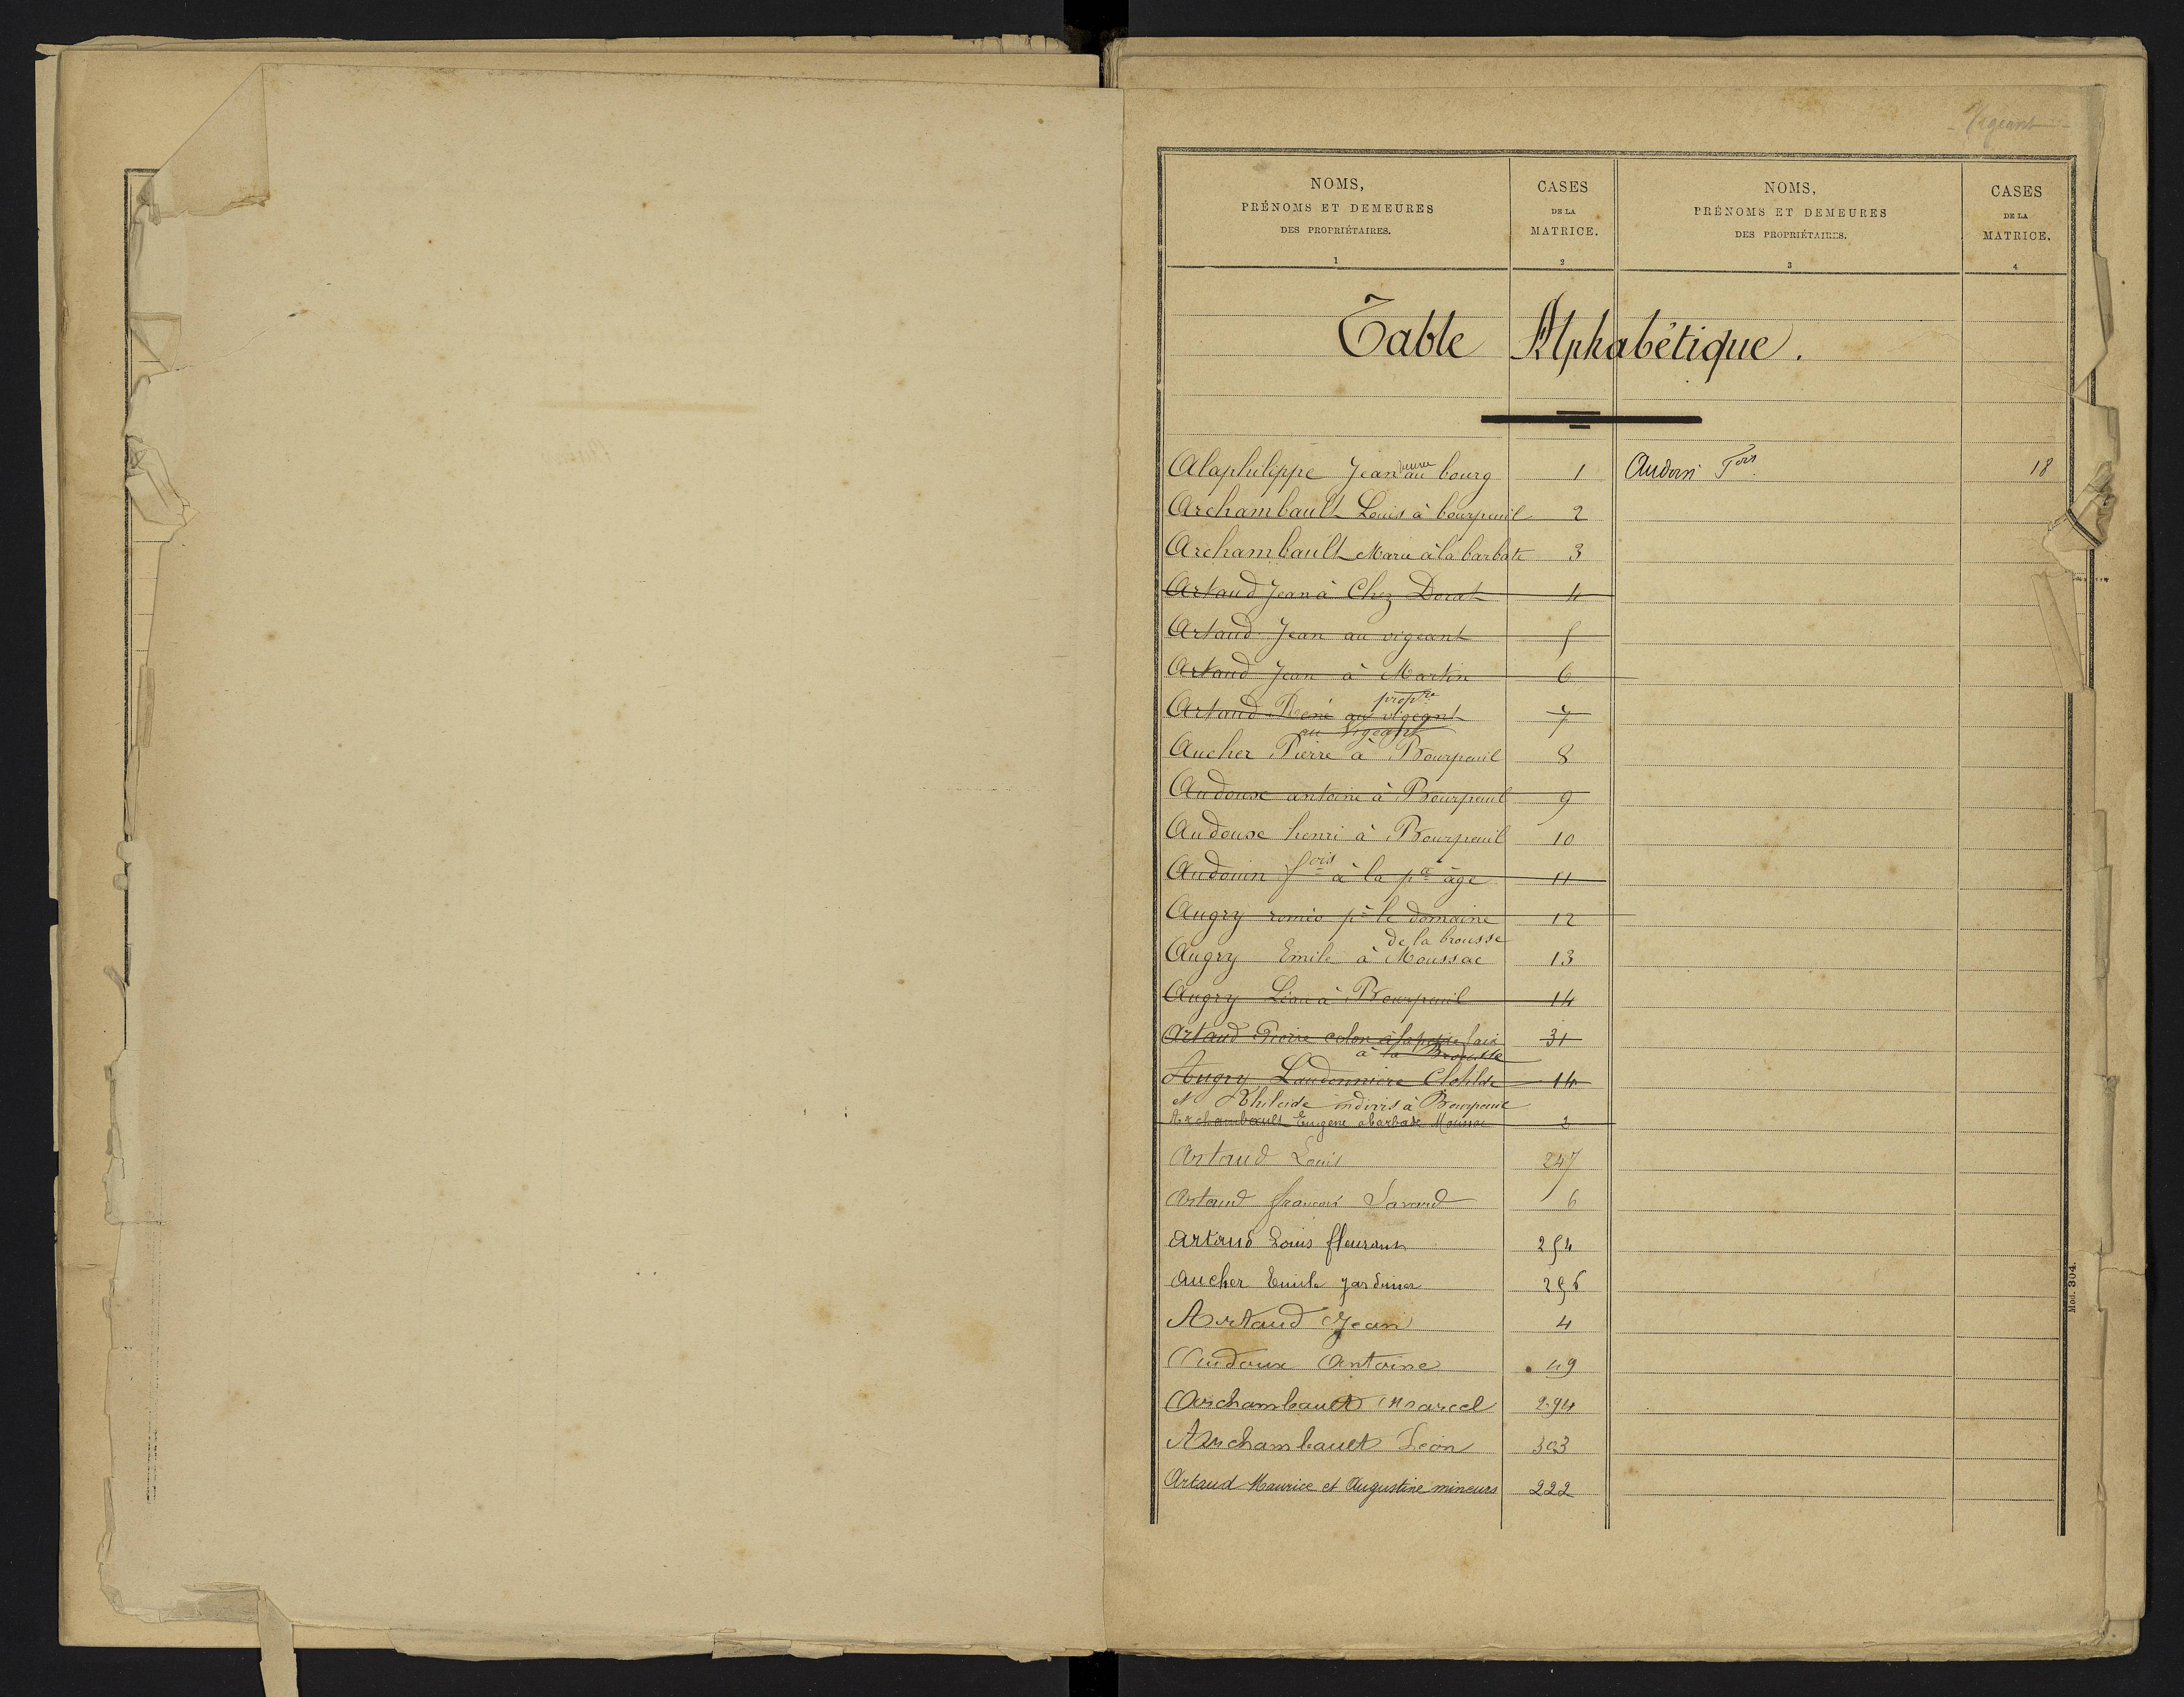 Vigeant
NOMS,
PRÉNOMS ET DEMEURES
DES PROPRIÉTAIRES.
1
CASES
DE LA
MATRICE.
2
NOMS,
PRÉNOMS ET DEMEURES
DES PROPRIÉTAIRES.
3
CASES
DE LA
MATRICE.
4
Table Alphabétique.
Alaphilippe Jean jeune au bourg 1
Archambault Louis à bourpeuil 2
Archambault Marie à la barbate 3
Artaud Jean à Chez Dorat 4
Artaud Jean au vigeant 5
Artaud Jean à Martin 6
propre
Artaud René au vigeant 7
au Vigeant
Aucher Pierre à Bourpeuil 8
Audoux antoine à Bourpeuil 9
Audoux henri à Bourpeuil 10
Audouin fois à la pte âge 11
Augry roméo pr le domaine 12
de la brousse
Augry Emile à Moussac 13
Augry Léon à Bourpeuil 14
Artaud Pierre colon à la petite 31
à la Brousse
Augry Laudonnière Clotilde 14
et indivis à Bourpeuil
Archambault Eugène abarbate Moussac 2
Artaud Louis 247
Artaud françois 6
Artaud Louis fleurant 254
Aucher Emile jardinier 256
Artaud Jean 4
Audoux Antoine 49
Archambault Marcel 294
Archambault Léon 303
Artaud Maurice et Augustine mineurs 222
Fois 18
Mod. 304.